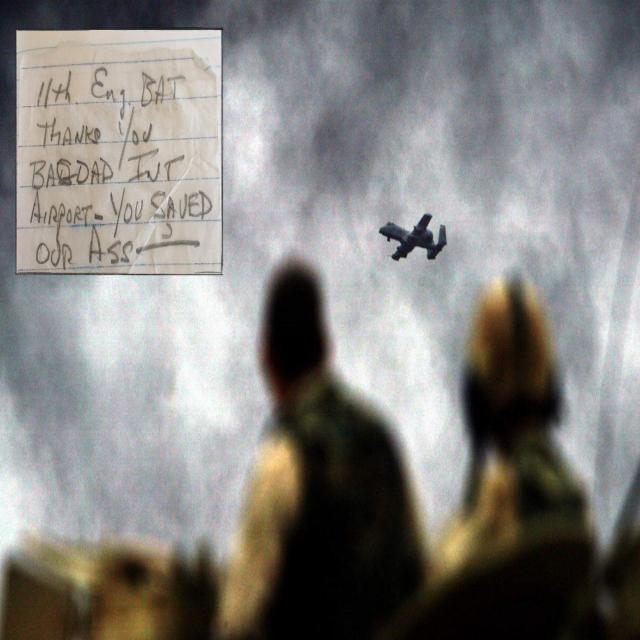 11th. Eng. BAT
THANKS YOU
BAGDAD INT
AIRPORT - YOU SAVED
OUR ASS